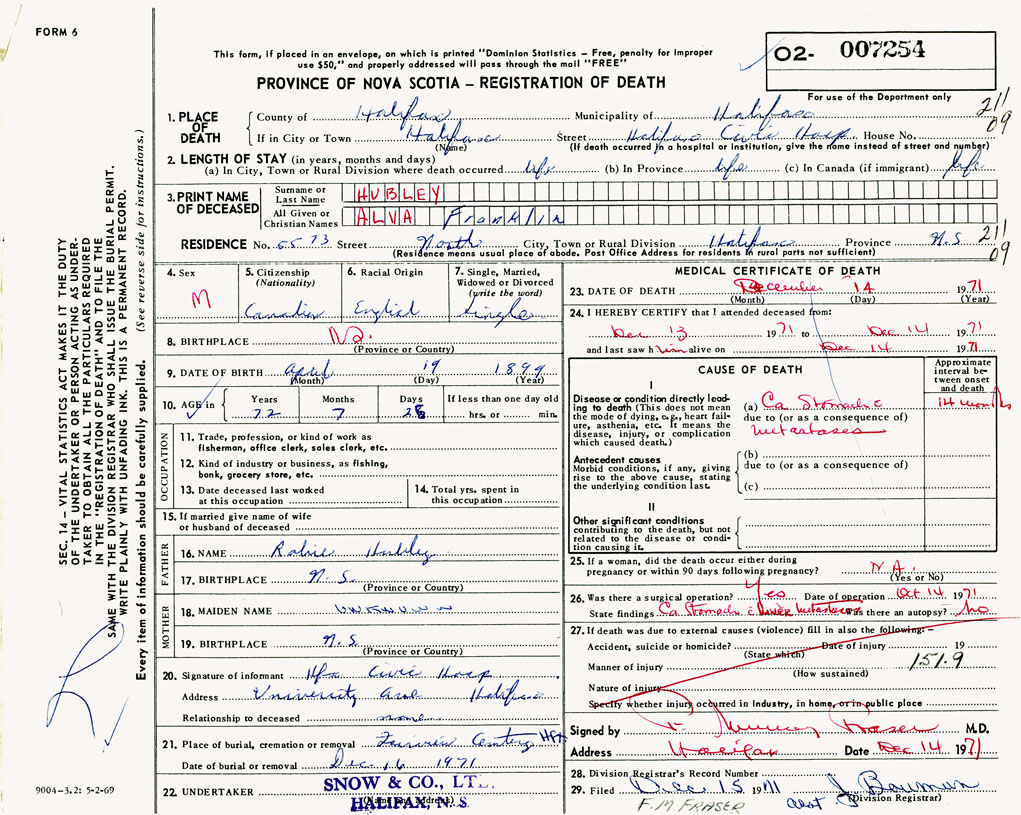 FORM 6
This form, if placed in an envelope, on which is printed "Dominion Statistics – Free, penalty for improper
use $50," and properly addressed will pass through the mail "FREE"
PROVINCE OF NOVA SCOTIA – REGISTRATION OF DEATH
O2- 007254
For use of the Department only
211
09
1. PLACE OF DEATH
County of Halifax Municipality of Halifax
If in City or Town Halifax Street Halifax Civic Hosp. House No.
(Name) (If death occurred in a hospital or institution, give the name instead of street and number)
2. LENGTH OF STAY (in years, months and days)
(a) In City, Town or Rural Division where death occurred life (b) In Province life (c) In Canada (if immigrant) life
3. PRINT NAME OF DECEASED
Surname or Last Name HUBLEY
All Given or Christian Names ALVA Franklin
RESIDENCE No. 5573 Street North City, Town or Rural Division Halifax Province N.S.
211
09
(Residence means usual place of abode. Post Office Address for residents in rural parts not sufficient)
4. Sex
M
5. Citizenship
(Nationality)
Canadian
6. Racial Origin
English
7. Single, Married,
Widowed or Divorced
(write the word)
Single
8. BIRTHPLACE N.S.
(Province or Country)
9. DATE OF BIRTH April 19 1899
(Month) (Day) (Year)
10. AGE in
Years Months Days If less than one day old
72 7 25 hrs. or min.
OCCUPATION
11. Trade, profession, or kind of work as
fisherman, office clerk, sales clerk, etc.
12. Kind of industry or business, as fishing,
bank, grocery store, etc.
13. Date deceased last worked
at this occupation
14. Total yrs. spent in
this occupation
15. If married give name of wife
or husband of deceased
FATHER
16. NAME Hubley
17. BIRTHPLACE N.S.
(Province or Country)
MOTHER
18. MAIDEN NAME UNKNOWN
19. BIRTHPLACE N.S.
(Province or Country)
20. Signature of informant Hfx Civic Hosp
Address University Ave Halifax
Relationship to deceased none
21. Place of burial, cremation or removal Hfx
Date of burial or removal Dec. 16 1971
22. UNDERTAKER SNOW & CO., LTD.
(Name and address)
HALIFAX, N.S.
MEDICAL CERTIFICATE OF DEATH
23. DATE OF DEATH December 14 1971
(Month) (Day) (Year)
24. I HEREBY CERTIFY that I attended deceased from:
Dec 13 1971 to Dec 14 1971
and last saw him alive on Dec 14 1971
CAUSE OF DEATH
Approximate
interval be-
tween onset
and death
I
Disease or condition directly lead-
ing to death (This does not mean
the mode of dying, e.g., heart fail-
ure, asthenia, etc. It means the
disease, injury, or complication
which caused death.)
(a) Ca Stomach c
14 months
due to (or as a consequence of)
metastases
Antecedent causes
Morbid conditions, if any, giving
rise to the above cause, stating
the underlying condition last.
(b)
due to (or as a consequence of)
(c)
II
Other significant conditions
contributing to the death, but not
related to the disease or condi-
tion causing it.
25. If a woman, did the death occur either during
pregnancy or within 90 days following pregnancy? N.A.
(Yes or No)
26. Was there a surgical operation? Yes Date of operation Oct 14 1971
State findings Ca Stomach c metastases Was there an autopsy? No
27. If death was due to external causes (violence) fill in also the following: –
Accident, suicide or homicide? Date of injury 19
(State which)
Manner of injury 151.9
(How sustained)
Nature of injury
Specify whether injury occurred in industry, in home, or in public place
Signed by F. Murray Fraser M.D.
Address Halifax Date Dec 14 1971
28. Division Registrar's Record Number
29. Filed Dec 15 1971
(Division Registrar)
F.M FRASER
SEC. 14 – VITAL STATISTICS ACT MAKES IT THE DUTY
OF THE UNDERTAKER OR PERSON ACTING AS UNDER-
TAKER TO OBTAIN ALL THE PARTICULARS REQUIRED
IN THE "REGISTRATION OF DEATH" AND TO FILE THE
SAME WITH THE DIVISION REGISTRAR WHO SHALL ISSUE THE BURIAL PERMIT.
WRITE PLAINLY WITH UNFADING INK. THIS IS A PERMANENT RECORD.
Every item of information should be carefully supplied. (See reverse side for instructions.)
9004-3.2: 5-2-69